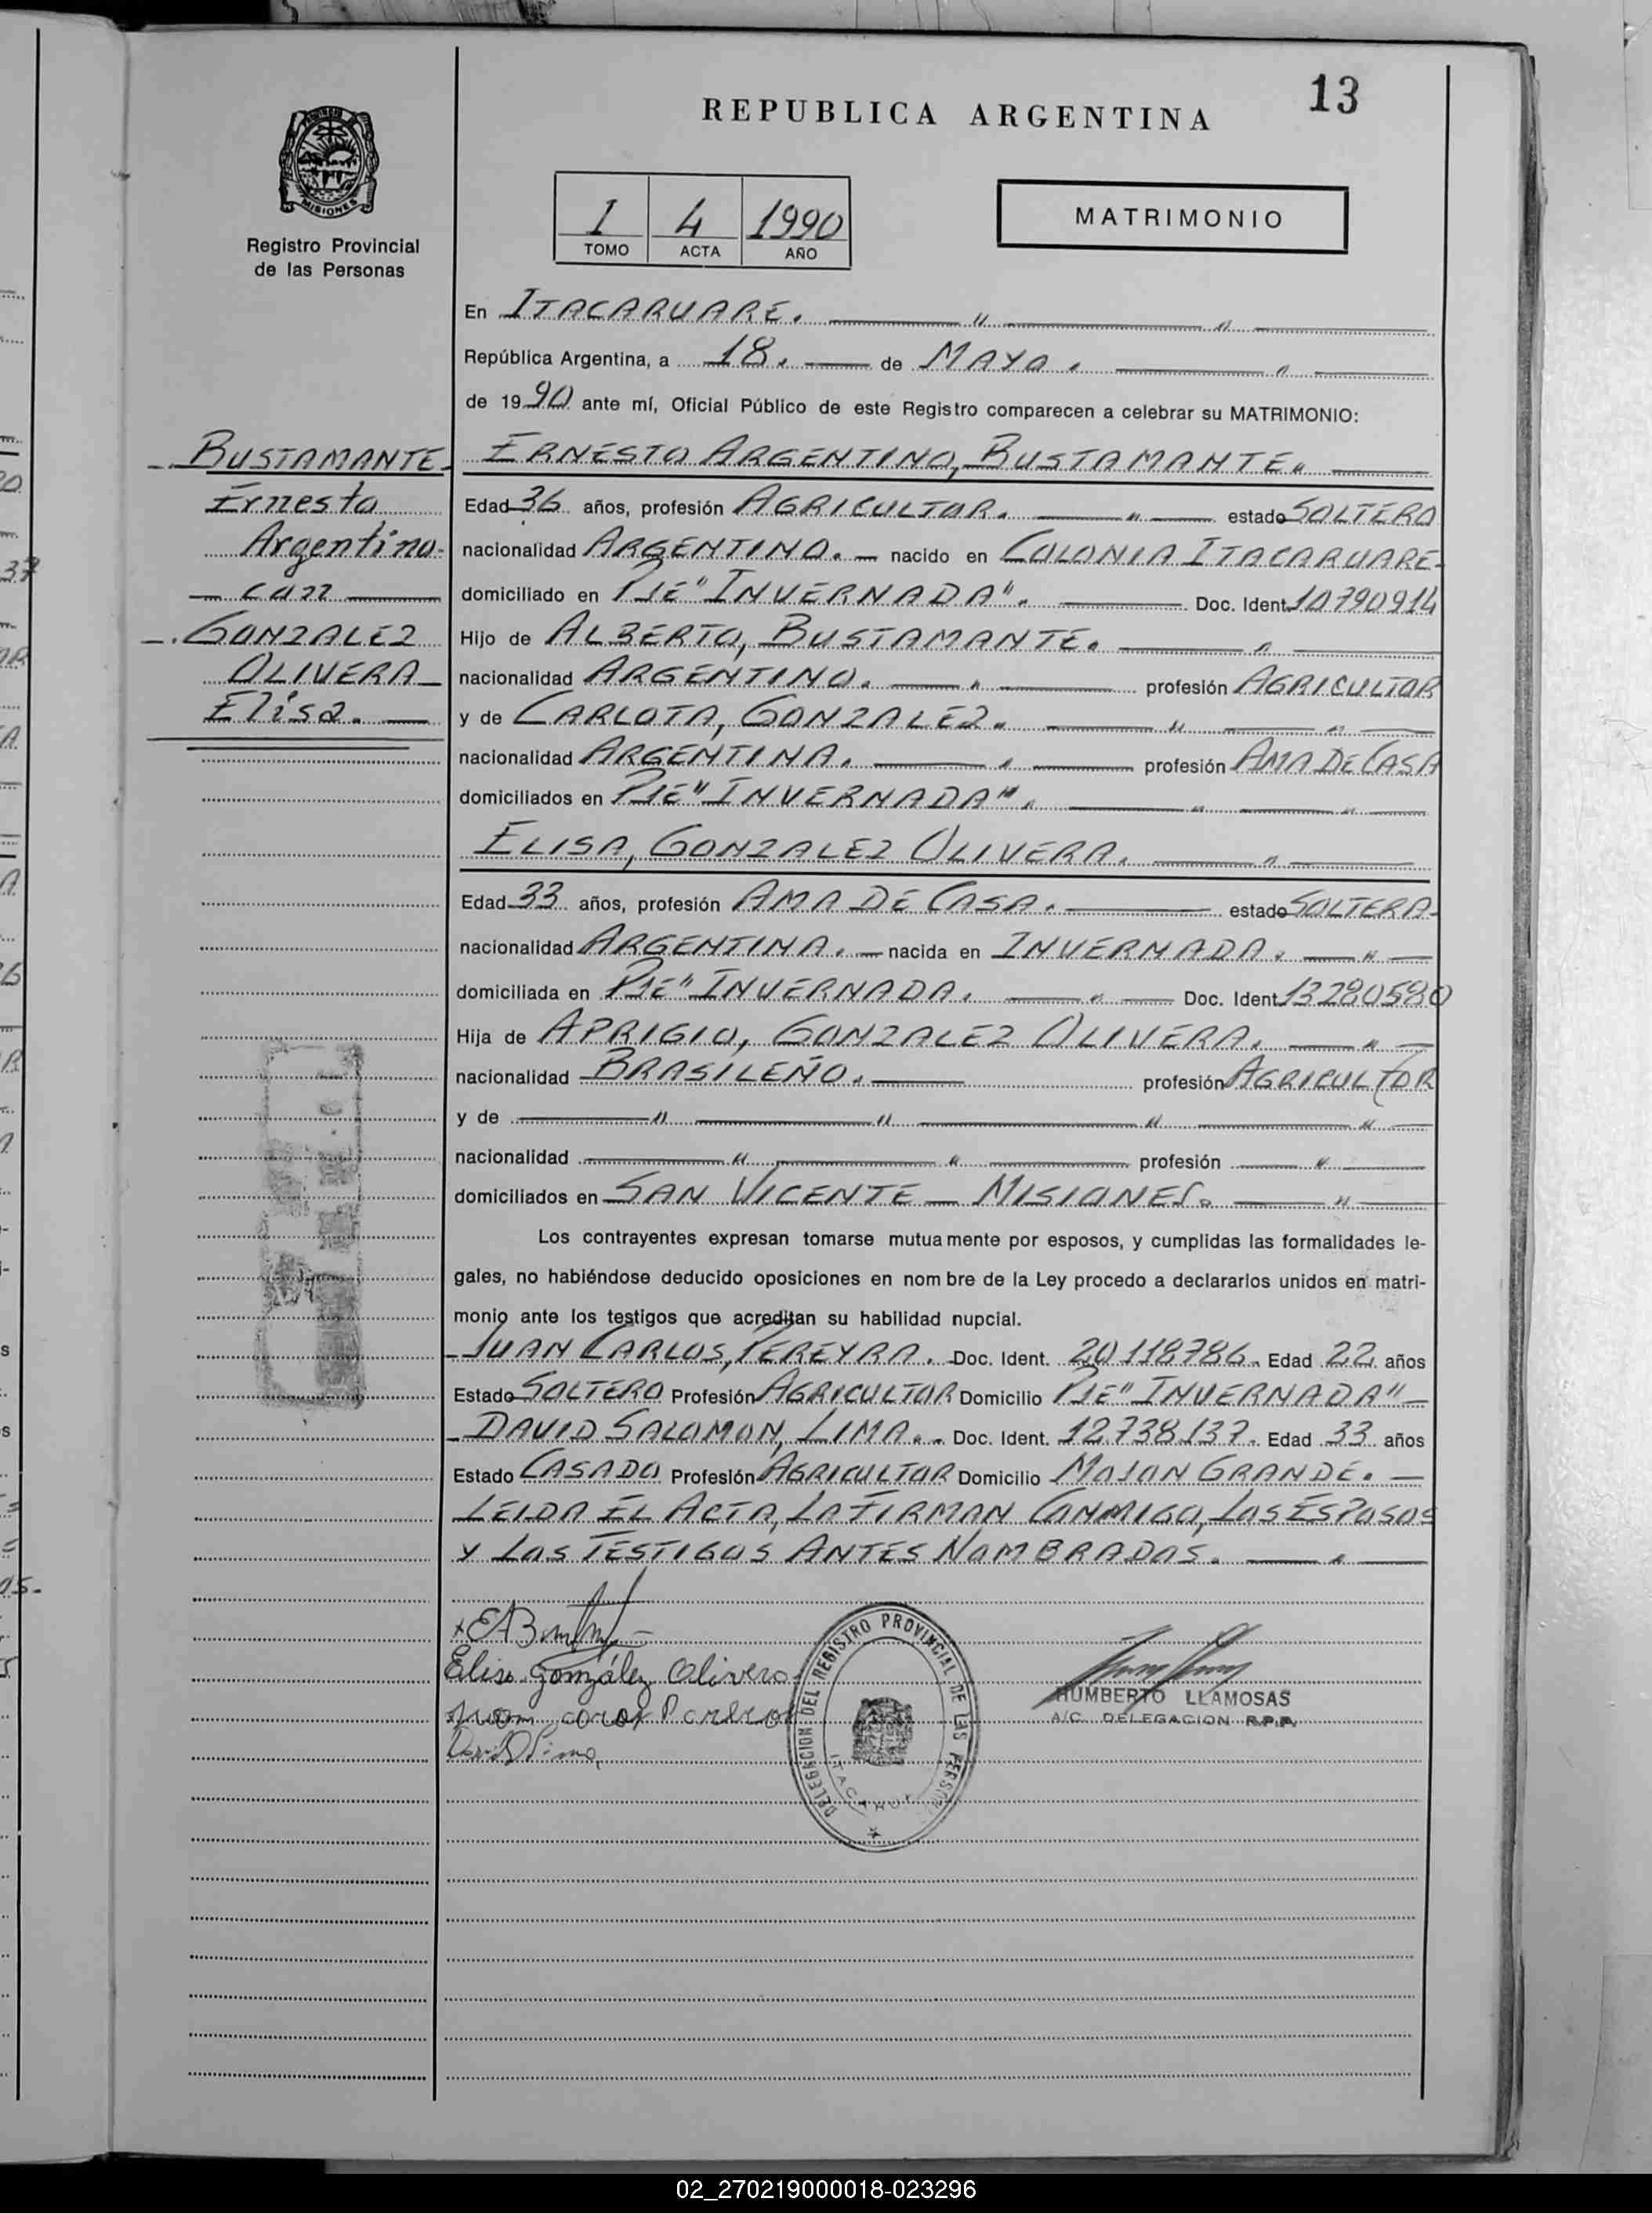 13
REPUBLICA ARGENTINA
PROVINCIA DE
MISIONES
Registro Provincial
de las Personas
I 4 1990
TOMO ACTA AÑO
MATRIMONIO
En ITACARUARE. — " — " —
República Argentina, a 18. — de MAYO. — " —
de 1990 ante mí, Oficial Público de este Registro comparecen a celebrar su MATRIMONIO:
-. BUSTAMANTE-
Ernesto
Argentino-
— con —
-. GONZALEZ
OLIVERA-
Elisa. —
ERNESTO ARGENTINO, BUSTAMANTE. —
Edad 36 años, profesión AGRICULTOR. — " — estado SOLTERO
nacionalidad ARGENTINO. — nacido en COLONIA ITACARUARE-
domiciliado en PJE "INVERNADA". — Doc. Ident. 10790914
Hijo de ALBERTO, BUSTAMANTE. — " —
nacionalidad ARGENTINO. — " — profesión AGRICULTOR
y de CARLOTA, GONZALEZ. — " — " —
nacionalidad ARGENTINA. — " — profesión AMA DE CASA
domiciliados en PJE "INVERNADA". — " — " —
ELISA, GONZALEZ OLIVERA. — " —
Edad 33 años, profesión AMA DE CASA. — estado SOLTERA-
nacionalidad ARGENTINA. — nacida en INVERNADA. — " —
domiciliada en PJE "INVERNADA. — " — Doc. Ident. 13280580
Hija de APRIGIO, GONZALEZ OLIVERA. — " —
nacionalidad BRASILEÑO. — profesión AGRICULTOR
y de — " — " — " — " —
nacionalidad — " — " — profesión — " —
domiciliados en SAN VICENTE — MISIONES. — " —
Los contrayentes expresan tomarse mutuamente por esposos, y cumplidas las formalidades le-
gales, no habiéndose deducido oposiciones en nombre de la Ley procedo a declararlos unidos en matri-
monio ante los testigos que acreditan su habilidad nupcial.
-JUAN CARLOS, PEREYRA. Doc. Ident. 20118786. Edad 22 años
Estado SOLTERO Profesión AGRICULTOR Domicilio PJE "INVERNADA" —
-DAVID SALOMON, LIMA. - Doc. Ident. 12.738.137. Edad 33 años
Estado CASADO Profesión AGRICULTOR Domicilio MOJON GRANDE. —
LEIDA EL ACTA, LA FIRMAN CONMIGO, LOS ESPOSOS
Y LOS TESTIGOS ANTES NOMBRADOS. — " —
Elisa González Olivera
HUMBERTO LLAMOSAS
A/C. DELEGACION R.P.P.
DELEGACION DEL REGISTRO PROVINCIAL DE LAS PERSONAS
02_270219000018-023296